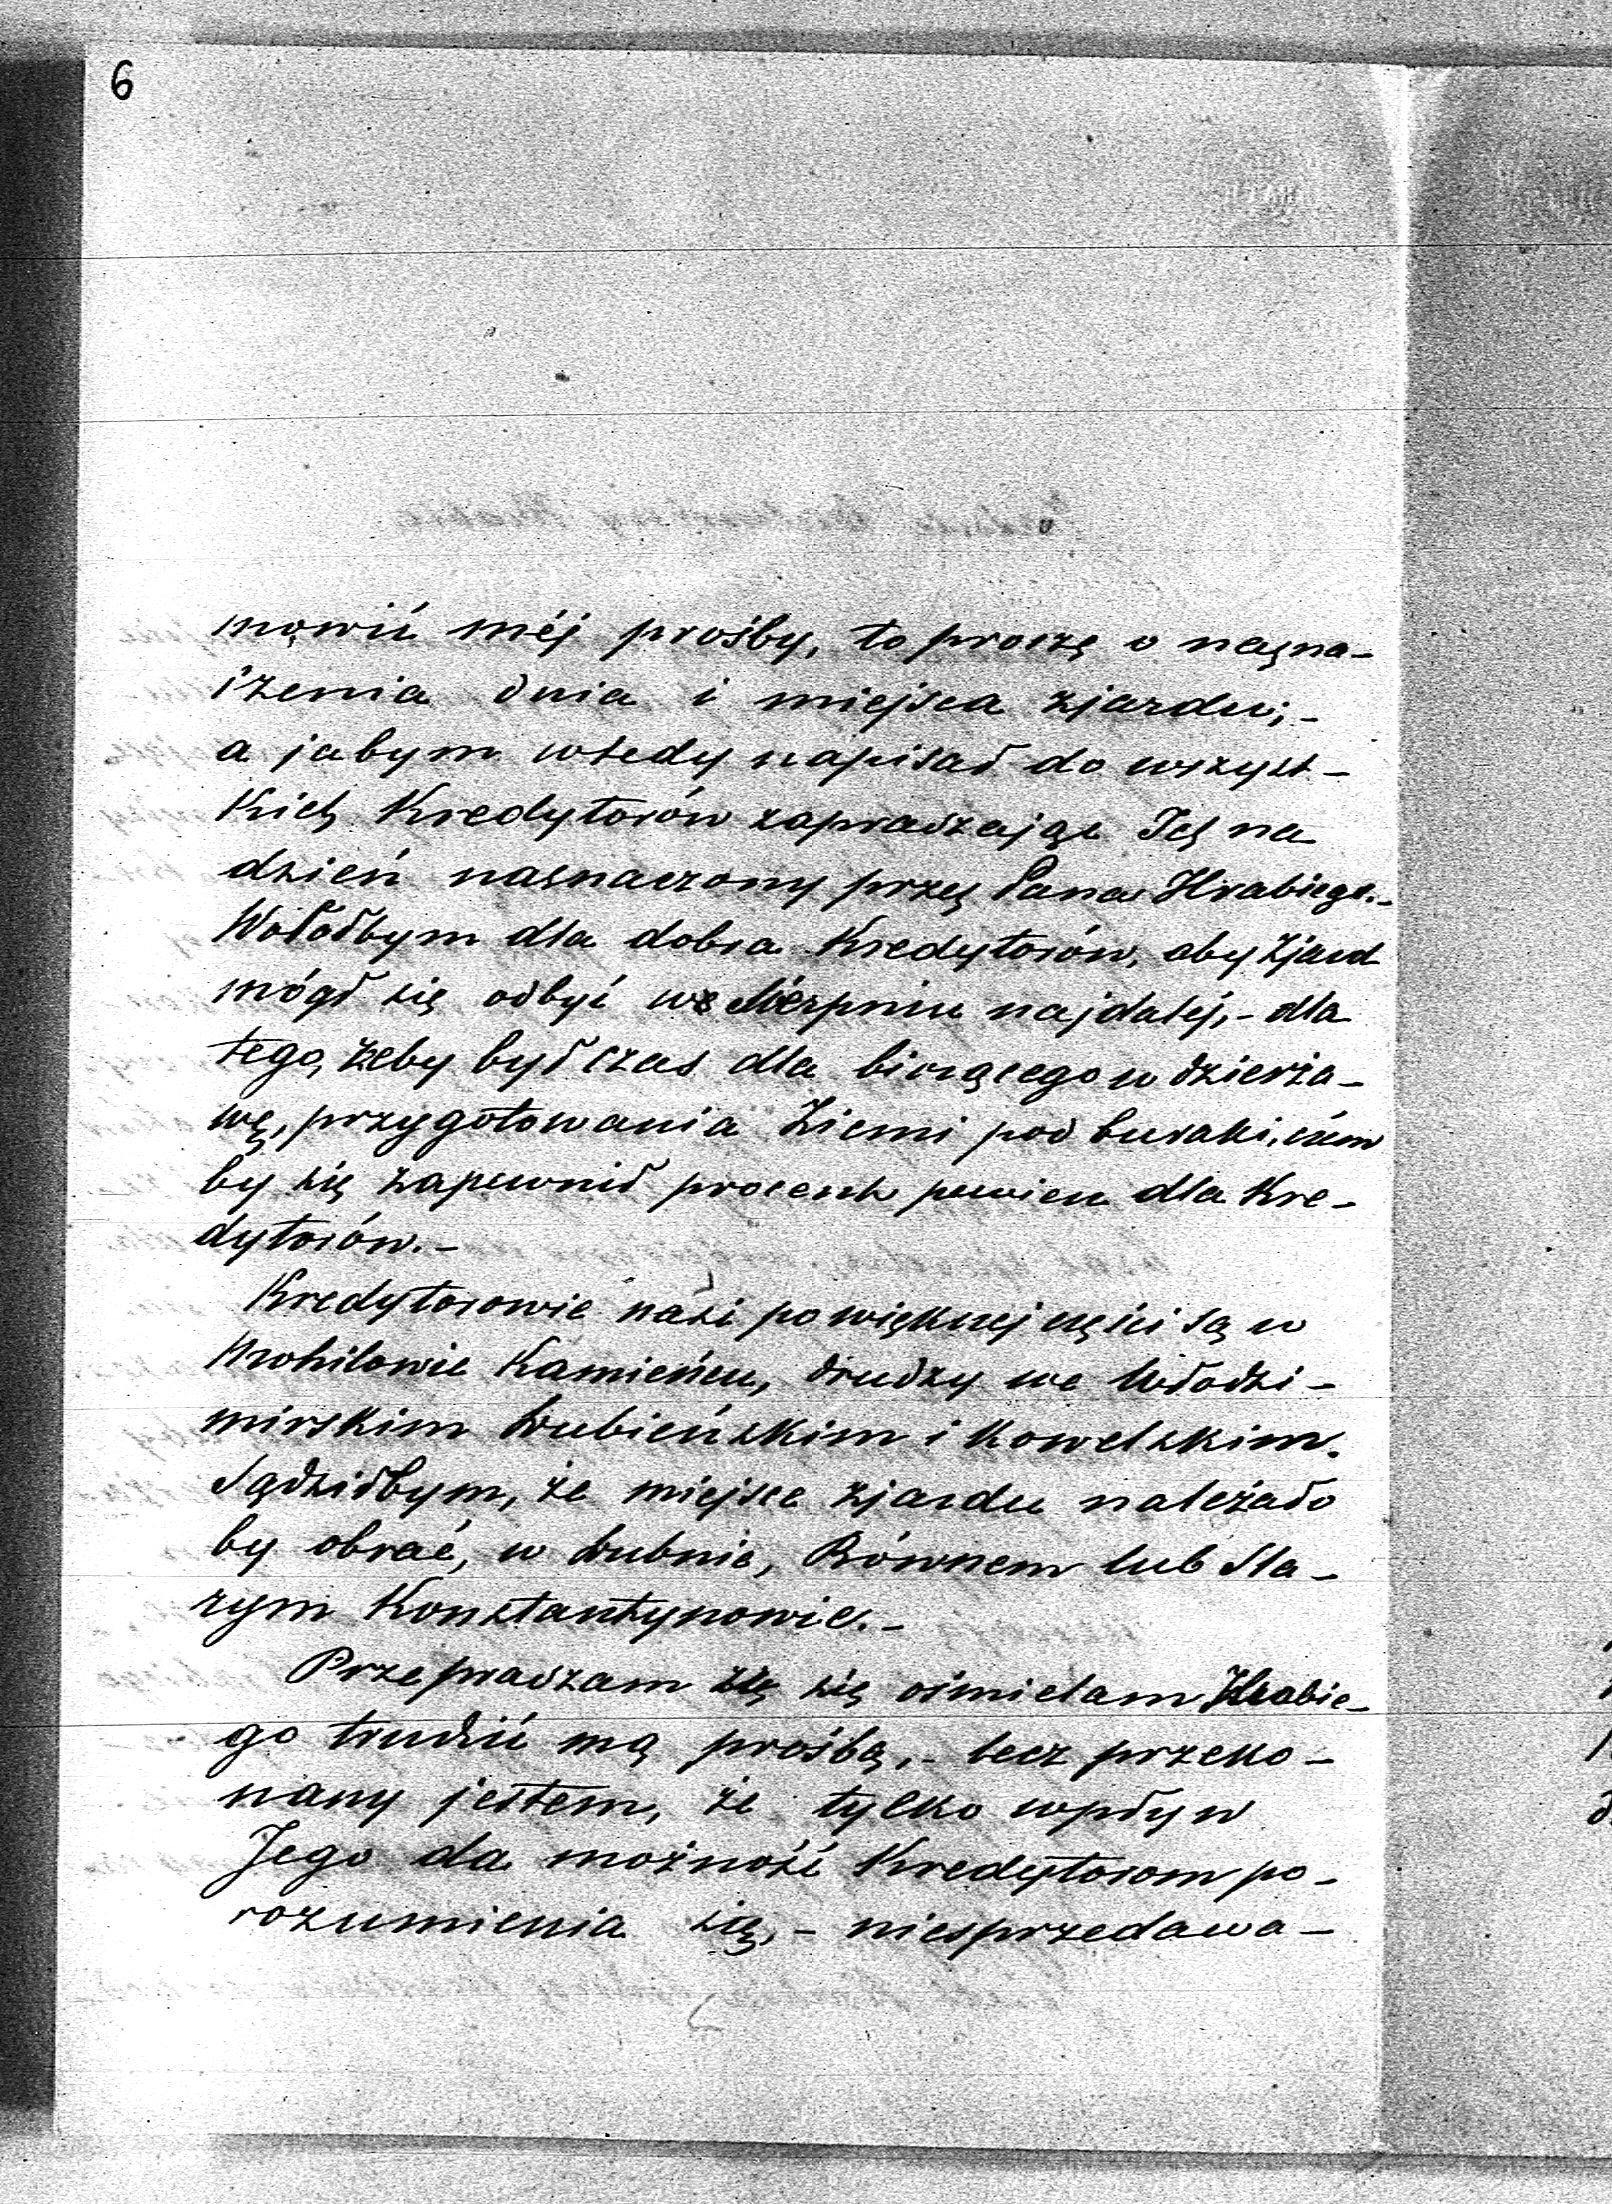 6
mówić méj prośby, to proszę o nazna-
czenia dnia i miejsca zjazdu; -
a jabym wtedy napisał do wszyst-
kich Kredytorów zapraszając Ich na
dzień naznaczony przez Pana Hrabiego. -
Wołałbym dla dobra Kredytorów, aby zjazd
mógł się odbyć w Sierpniu najdaléj, - dla
tego, żeby był czas dla biorącego w dzierża-
wę, przygotowania Ziemi pod buraki, czem
by się zapewnił procent pewien dla Kre-
dytorów. -
Kredytorowie nasi po większej części są w
Mohilowie Kamieńcu, drudzy we Włodzi-
mirskim Dubieńskim i Kowelskim.
Sądziłbym, że miejsce zjazdu należało
by obrać, w Dubnie, Równem lub Sta-
rym Konstantynowie. -
Przepraszam że się ośmielam Hrabie-
go trudzić mą prośbą, - lecz przeko-
nany jestem, że tylko wpływ
Jego da możność Kredytorom po-
rozumienia się, - niesprzedawa-